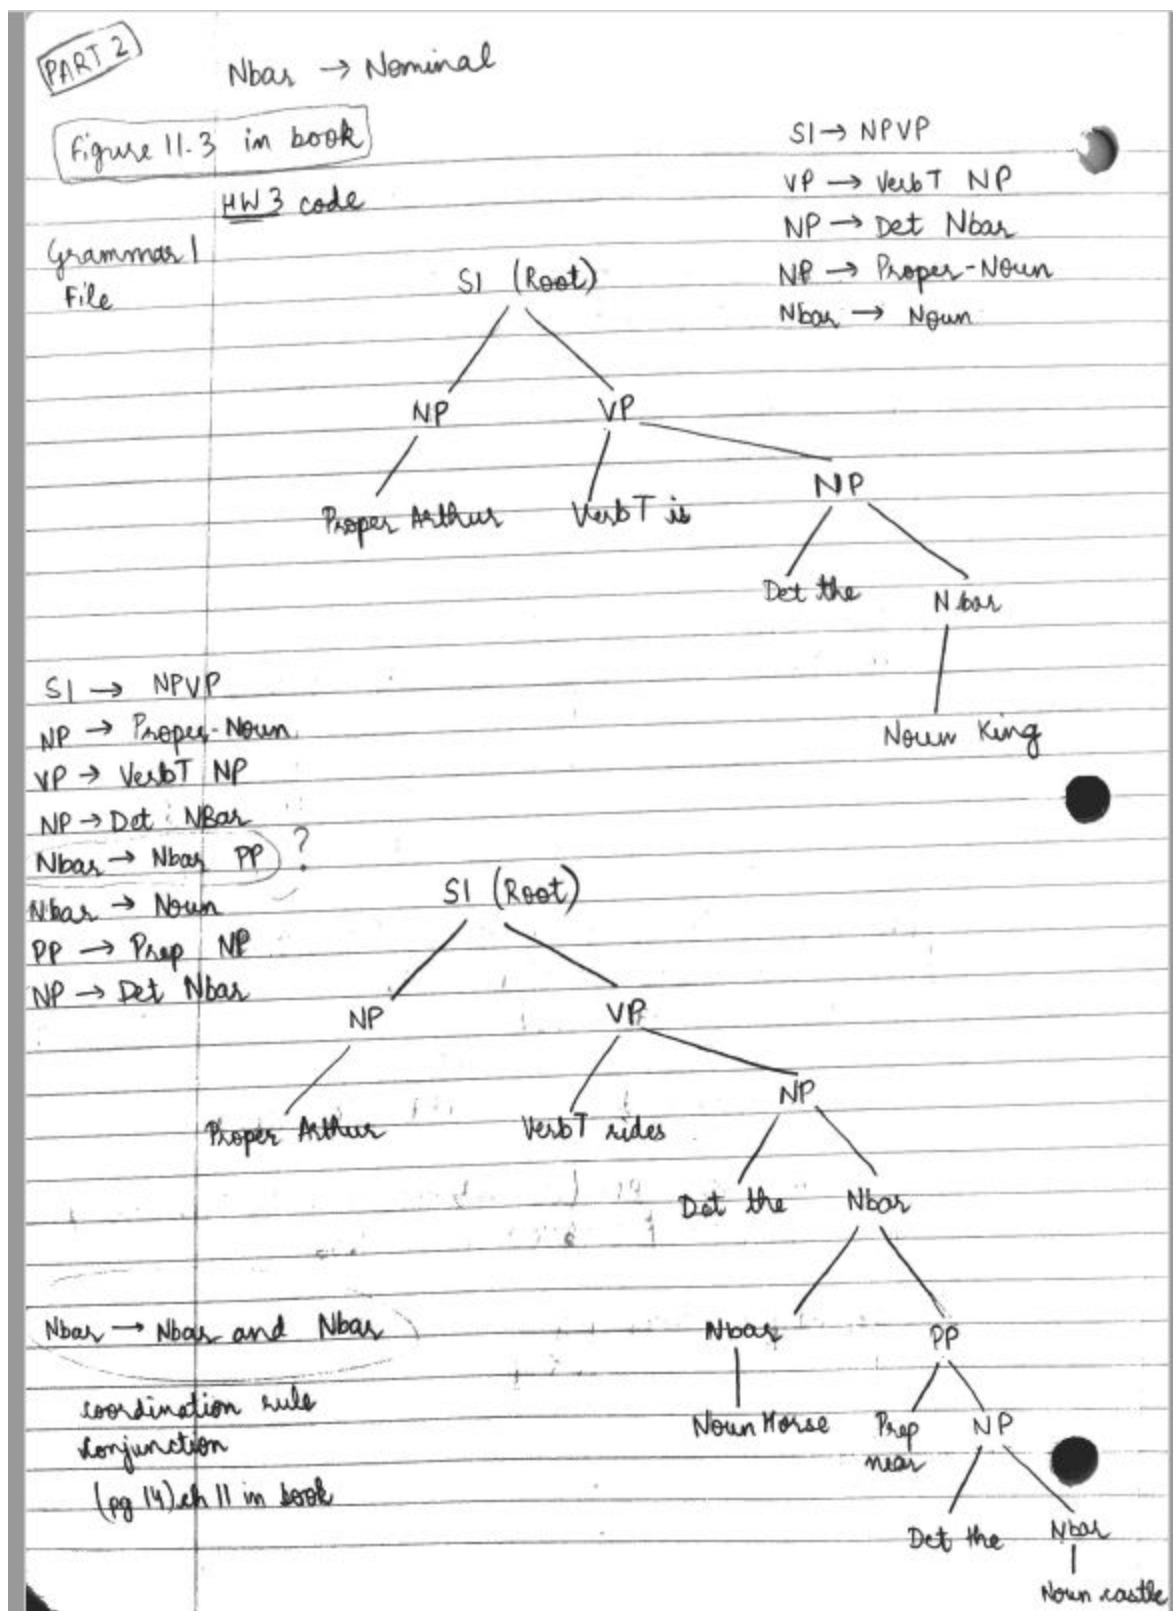 PART 2
Nbar → Nominal
Figure 11.3 in book
HW 3 code
Grammar 1
File
S1 → NPVP
VP → VerbT NP
NP → Det Nbar
NP → Proper-Noun
Nbar → Noun
S1 (Root)
NP VP
Proper Arthur VerbT is NP
Det the Nbar
Noun King
S1 → NPVP
NP → Proper-Noun
VP → VerbT NP
NP → Det NBar
Nbar → Nbar PP ?
Nbar → Noun
PP → Prep NP
NP → Det Nbar
S1 (Root)
NP VP
NP
Proper Arthur VerbT rides
Det the Nbar
Nbar PP
Noun Horse Prep NP
near
Det the Nbar
Noun castle
Nbar → Nbar and Nbar
coordination rule
conjunction
(pg 14) ch 11 in book